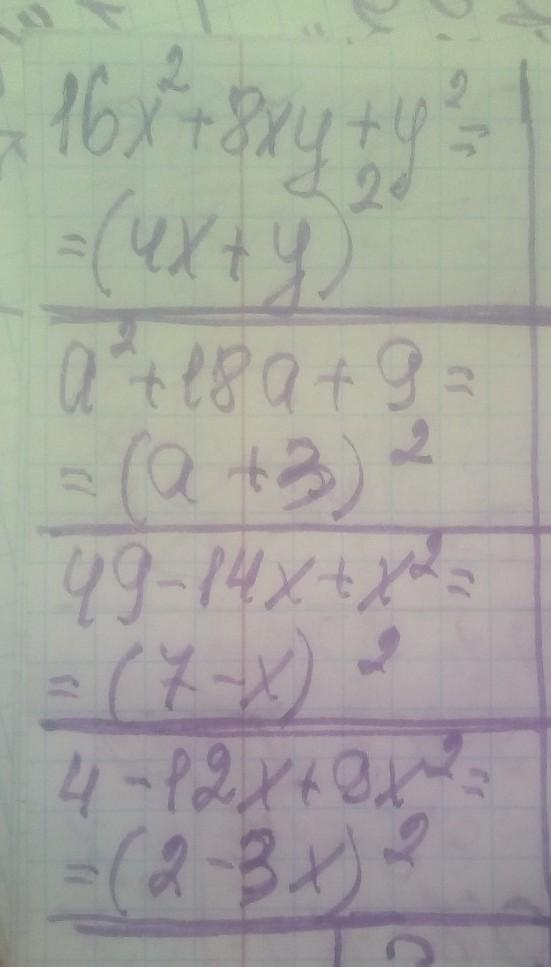 16x²+8xy+y²=
=(4x+y)²
a²+18a+9=
=(a+3)²
49-14x+x²=
=(7-x)²
4-12x+9x²=
=(2-3x)²